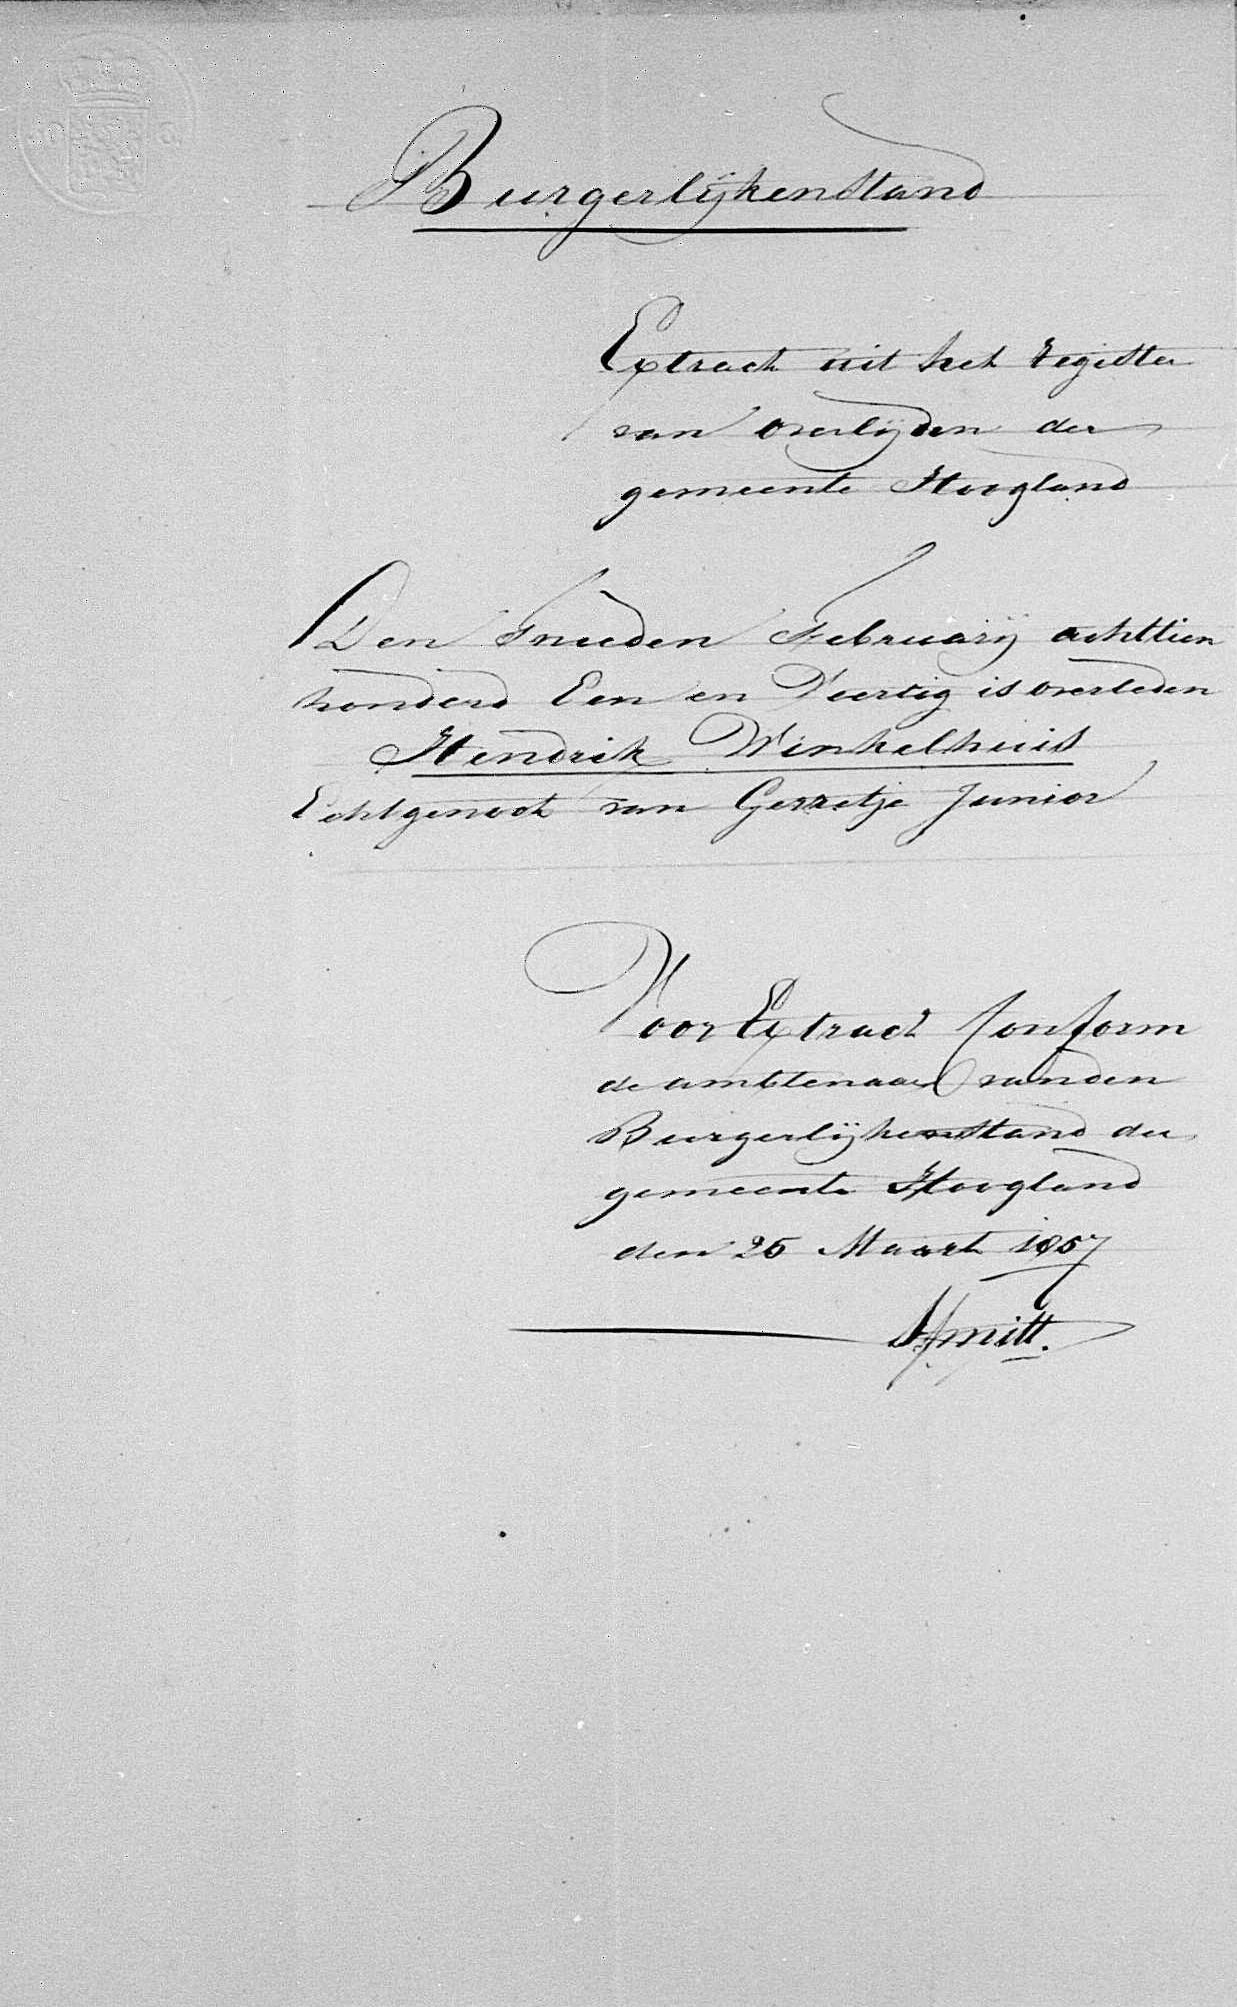 Burgerlijkenstand
Extract uit het register
van overlijden der
gemeente Hoogland
Den Tweeden Februarij achttien
honderd Een en Veertig is overleden
Hendrik Winkelhuis
Echtgenoot van Gerretje Junior
Voor Extract Conform
de ambtenaar van den
Burgerlijkenstand der
gemeente Hoogland
den 25 Maart 1857
Smitt.